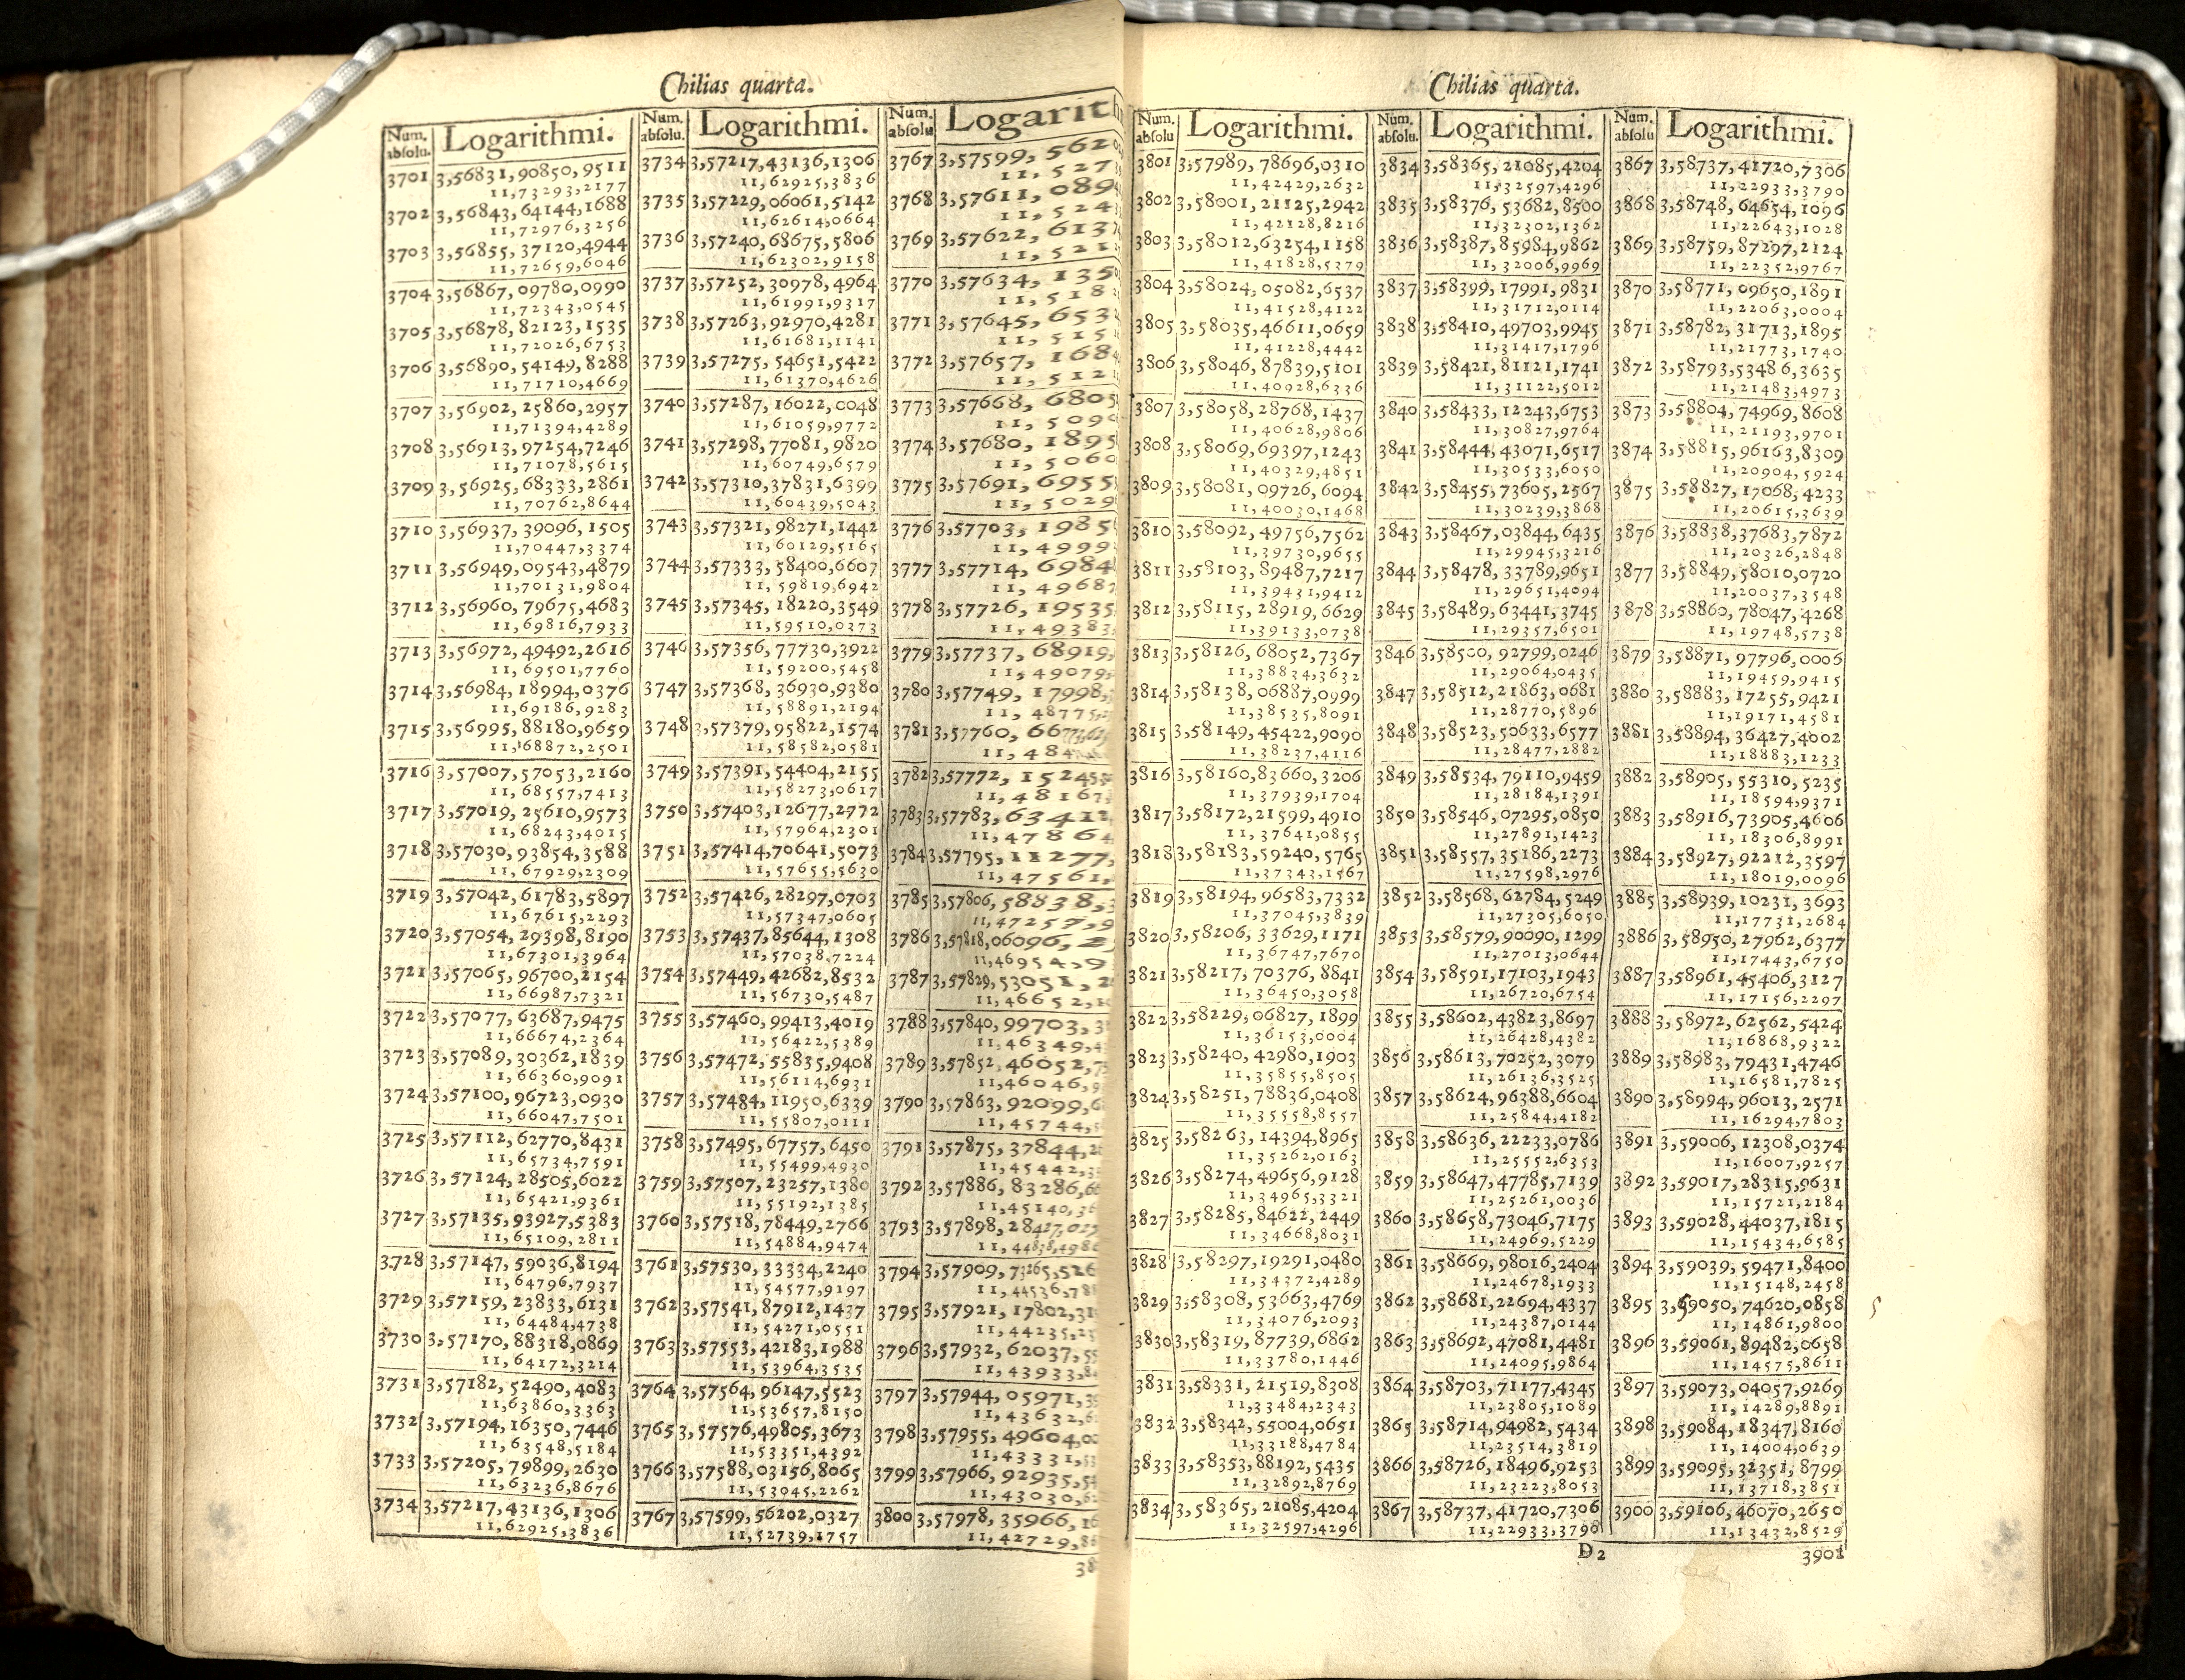 Chilias quarta.
Num. absolu. Logarithmi.
3701 3,56831,90850,9511
11,73293,2177
3702 3,56843,64144,1688
11,72976,3256
3703 3,56855,37120,4944
11,72659,6046
3704 3,56867,09780,0990
11,72343,0545
3705 3,56878,82123,1535
11,72026,6753
3706 3,56890,54149,8288
11,71710,4669
3707 3,56902,25860,2957
11,71394,4289
3708 3,56913,97254,7246
11,71078,5615
3709 3,56925,68333,2861
11,70762,8644
3710 3,56937,39096,1505
11,70447,3374
3711 3,56949,09543,4879
11,70131,9804
3712 3,56960,79675,4683
11,69816,7933
3713 3,56972,49492,2616
11,69501,7760
3714 3,56984,18994,0376
11,69186,9283
3715 3,56995,88180,9659
11,68872,2501
3716 3,57007,57053,2160
11,68557,7413
3717 3,57019,25610,9573
11,68243,4015
3718 3,57030,93854,3588
11,67929,2309
3719 3,57042,61783,5897
11,67615,2293
3720 3,57054,29398,8190
11,67301,3964
3721 3,57065,96700,2154
11,66987,7321
3722 3,57077,63687,9475
11,66674,2364
3723 3,57089,30362,1839
11,66360,9091
3724 3,57100,96723,0930
11,66047,7501
3725 3,57112,62770,8431
11,65734,7591
3726 3,57124,28505,6022
11,65421,9361
3727 3,57135,93927,5383
11,65109,2811
3728 3,57147,59036,8194
11,64796,7937
3729 3,57159,23833,6131
11,64484,4738
3730 3,57170,88318,0869
11,64172,3214
3731 3,57182,52490,4083
11,63860,3363
3732 3,57194,16350,7446
11,63548,5184
3733 3,57205,79899,2630
11,63236,8676
3734 3,57217,43136,1306
11,62925,3836
Num. absolu. Logarithmi.
3734 3,57217,43136,1306
11,62925,3836
3735 3,57229,06061,5142
11,62614,0664
3736 3,57240,68675,5806
11,62302,9158
3737 3,57252,30978,4964
11,61991,9317
3738 3,57263,92970,4281
11,61681,1141
3739 3,57275,54651,5422
11,61370,4626
3740 3,57287,16022,0048
11,61059,9772
3741 3,57298,77081,9820
11,60749,6579
3742 3,57310,37831,6399
11,60439,5043
3743 3,57321,98271,1442
11,60129,5165
3744 3,57333,58400,6607
11,59819,6942
3745 3,57345,18220,3549
11,59510,0373
3746 3,57356,77730,3922
11,59200,5458
3747 3,57368,36930,9380
11,58891,2194
3748 3,57379,95822,1574
11,58582,0581
3749 3,57391,54404,2155
11,58273,0617
3750 3,57403,12677,2772
11,57964,2301
3751 3,57414,70641,5073
11,57655,5630
3752 3,57426,28297,0703
11,57347,0605
3753 3,57437,85644,1308
11,57038,7224
3754 3,57449,42682,8532
11,56730,5487
3755 3,57460,99413,4019
11,56422,5389
3756 3,57472,55835,9408
11,56114,6931
3757 3,57484,11950,6339
11,55807,0111
3758 3,57495,67757,6450
11,55499,4930
3759 3,57507,23257,1380
11,55192,1385
3760 3,57518,78449,2766
11,54884,9474
3761 3,57530,33334,2240
11,54577,9197
3762 3,57541,87912,1437
11,54271,0551
3763 3,57553,42183,1988
11,53964,3535
3764 3,57564,96147,5523
11,53657,8150
3765 3,57576,49805,3673
11,53351,4392
3766 3,57588,03156,8065
11,53045,2262
3767 3,57599,56202,0327
11,52739,1757
Num. absolu
3767 3,57599,562
11,527
3768 3,57611,089
11,524
3769 3,57622,613
11,521
3770 3,57634,135
11,518
3771 3,57645,653
11,515
3772 3,57657,168
11,512
3773 3,57668,680
11,509
3774 3,57680,1895
11,506
3775 3,57691,6955
11,5029
3776 3,57703,1985
11,4999
3777 3,57714,6984
11,4968
3778 3,57726,19535
11,49383,
3779 3,57737,68919,
11,49079,
3780 3,57749,17998,
11,48775,
3781 3,57760,667
11,484
3782 3,57772,1524
11,48167,
3783 3,57783,63412
11,47864
3784 3,57795,11277,
11,47561,
3785 3,57806,58838,
11,47257,9
3786 3,57818,06096,
11,46954,9
3787 3,57829,53051,
11,46652,
3788 3,57840,99703,3
11,46349,
3789 3,57852,46052,
11,46046,
3790 3,57863,92099,
11,45744,
3791 3,57875,37844,
11,45442,
3792 3,57886,83286,
11,45140,
3793 3,57898,28427,
11,44838,
3794 3,57909,73265,526
11,44536,
3795 3,57921,17802,
11,44235,
3796 3,57932,62037,
11,43933,
3797 3,57944,05971,
11,43632,
3798 3,57955,49604,
11,43331,
3799 3,57966,92935,
11,43030,
3800 3,57978,35966,
11,42729,
Chilias quarta.
Num. absolu Logarithmi.
3801 3,57989,78696,0310
11,42429,2632
3802 3,58001,21125,2942
11,42128,8216
3803 3,58012,63254,1158
11,41828,5379
3804 3,58024,05082,6537
11,41528,4122
3805 3,58035,46611,0659
11,41228,4442
3806 3,58046,87839,5101
11,40928,6336
3807 3,58058,28768,1437
11,40628,9806
3808 3,58069,69397,1243
11,40329,4851
3809 3,58081,09726,6094
11,40030,1468
3810 3,58092,49756,7562
11,39730,9655
3811 3,58103,89487,7217
11,39431,9412
3812 3,58115,28919,6629
11,39133,0738
3813 3,58126,68052,7367
11,38834,3632
3814 3,58138,06887,0999
11,38535,8091
3815 3,58149,45422,9090
11,38237,4116
3816 3,58160,83660,3206
11,37939,1704
3817 3,58172,21599,4910
11,37641,0855
3818 3,58183,59240,5765
11,37343,1567
3819 3,58194,96583,7332
11,37045,3839
3820 3,58206,33629,1171
11,36747,7670
3821 3,58217,70376,8841
11,36450,3058
3822 3,58229,06827,1899
11,36153,0004
3823 3,58240,42980,1903
11,35855,8505
3824 3,58251,78836,0408
11,35558,8557
3825 3,58263,14394,8965
11,35262,0163
3826 3,58274,49656,9128
11,34965,3321
3827 3,58285,84622,2449
11,34668,8031
3828 3,58297,19291,0480
11,34372,4289
3829 3,58308,53663,4769
11,34076,2093
3830 3,58319,87739,6862
11,33780,1446
3831 3,58331,21519,8308
11,33484,2343
3832 3,58342,55004,0651
11,33188,4784
3833 3,58353,88192,5435
11,32892,8769
3834 3,58365,21085,4204
11,32597,4296
Num. absolu. Logarithmi.
3834 3,58365,21085,4204
11,32597,4296
3835 3,58376,53682,8500
11,32302,1362
3836 3,58387,85984,9862
11,32006,9969
3837 3,58399,17991,9831
11,31712,0114
3838 3,58410,49703,9945
11,31417,1796
3839 3,58421,81121,1741
11,31122,5012
3840 3,58433,12243,6753
11,30827,9764
3841 3,58444,43071,6517
11,30533,6050
3842 3,58455,73605,2567
11,30239,3868
3843 3,58467,03844,6435
11,29945,3216
3844 3,58478,33789,9651
11,29651,4094
3845 3,58489,63441,3745
11,29357,6501
3846 3,58500,92799,0246
11,29064,0435
3847 3,58512,21863,0681
11,28770,5896
3848 3,58523,50633,6577
11,28477,2882
3849 3,58534,79110,9459
11,28184,1391
3850 3,58546,07295,0850
11,27891,1423
3851 3,58557,35186,2273
11,27598,2976
3852 3,58568,62784,5249
11,27305,6050
3853 3,58579,90090,1299
11,27013,0644
3854 3,58591,17103,1943
11,26720,6754
3855 3,58602,43823,8697
11,26428,4382
3856 3,58613,70252,3079
11,26136,3525
3857 3,58624,96388,6604
11,25844,4182
3858 3,58636,22233,0786
11,25552,6353
3859 3,58647,47785,7139
11,25261,0036
3860 3,58658,73046,7175
11,24969,5229
3861 3,58669,98016,2404
11,24678,1933
3862 3,58681,22694,4337
11,24387,0144
3863 3,58692,47081,4481
11,24095,9864
3864 3,58703,71177,4345
11,23805,1089
3865 3,58714,94982,5434
11,23514,3819
3866 3,58726,18496,9253
11,23223,8053
3867 3,58737,41720,7306
11,22933,3790
Num. absolu Logarithmi.
3867 3,58737,41720,7306
11,22933,3790
3868 3,58748,64654,1096
11,22643,1028
3869 3,58759,87297,2124
11,22352,9767
3870 3,58771,09650,1891
11,22063,0004
3871 3,58782,31713,1895
11,21773,1740
3872 3,58793,53486,3635
11,21483,4973
3873 3,58804,74969,8608
11,21193,9701
3874 3,58815,96163,8309
11,20904,5924
3875 3,58827,17068,4233
11,20615,3639
3876 3,58838,37683,7872
11,20326,2848
3877 3,58849,58010,0720
11,20037,3548
3878 3,58860,78047,4268
11,19748,5738
3879 3,58871,97796,0006
11,19459,9415
3880 3,58883,17255,9421
11,19171,4581
3881 3,58894,36427,4002
11,18883,1233
3882 3,58905,55310,5235
11,18594,9371
3883 3,58916,73905,4606
11,18306,8991
3884 3,58927,92212,3597
11,18019,0096
3885 3,58939,10231,3693
11,17731,2684
3886 3,58950,27962,6377
11,17443,6750
3887 3,58961,45406,3127
11,17156,2297
3888 3,58972,62562,5424
11,16868,9322
3889 3,58983,79431,4746
11,16581,7825
3890 3,58994,96013,2571
11,16294,7803
3891 3,59006,12308,0374
11,16007,9257
3892 3,59017,28315,9631
11,15721,2184
3893 3,59028,44037,1815
11,15434,6585
3894 3,59039,59471,8400
11,15148,2458
3895 3,59050,74620,0858 5
11,14861,9800
3896 3,59061,89482,0658
11,14575,8611
3897 3,59073,04057,9269
11,14289,8891
3898 3,59084,18347,8160
11,14004,0639
3899 3,59095,32351,8799
11,13718,3851
3900 3,59106,46070,2650
11,13432,8529
D 2
3901